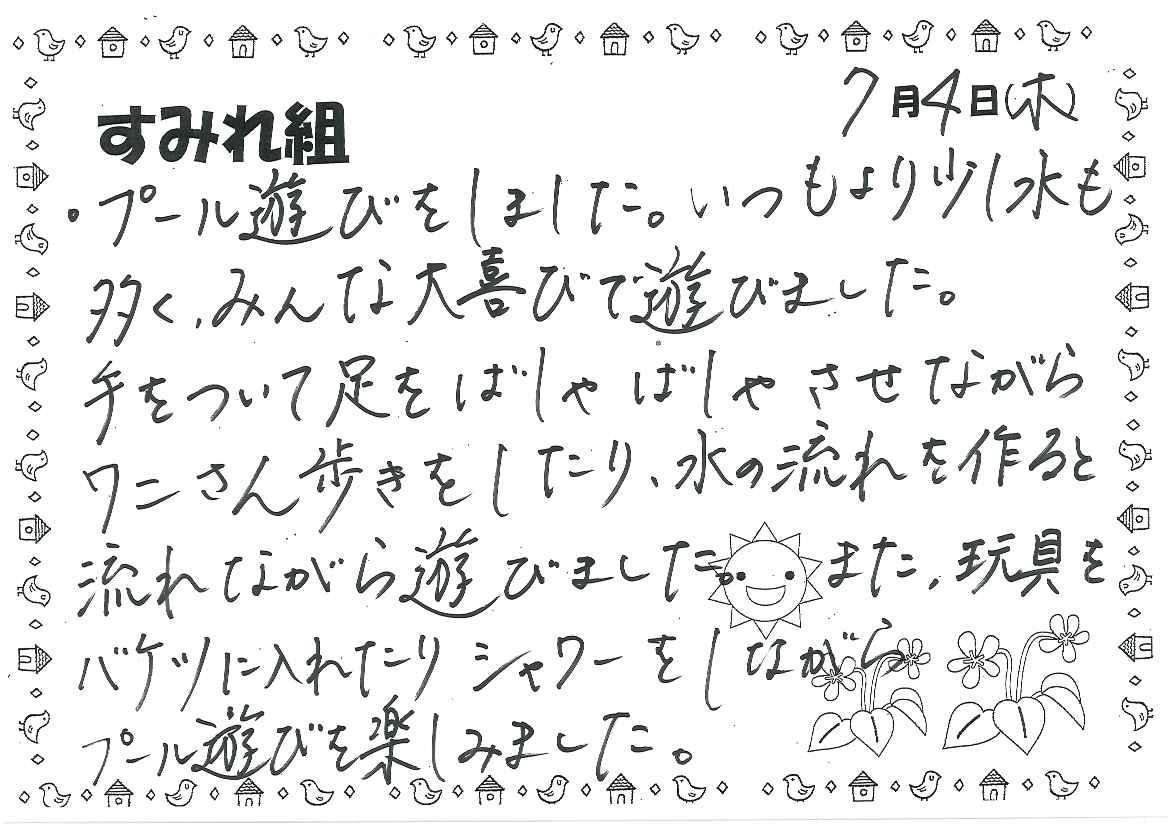 7月4日(木)
すみれ組
・プール遊びをしました。いつもより少し水も
多く、みんな大喜びで遊びました。
手をついて足をばしゃばしゃさせながら
ワニさん歩きをしたり、水の流れを作ると
流れながら遊びました。また、玩具を
バケツに入れたりシャワーをしながら
プール遊びを楽しみました。